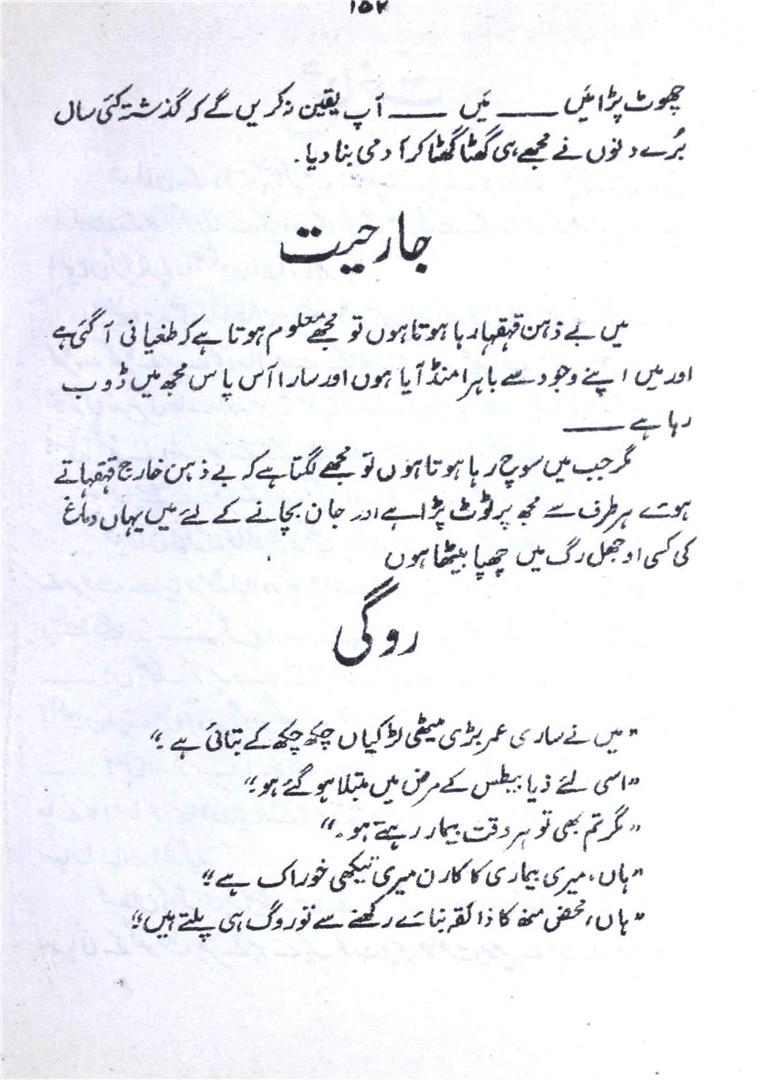 ۱۵۲
چھوٹ پڑا میں ـــــ میَں ـــــ آپ یقین نہ کریں گے کہ گذشتہ کئی سال
بُرے دنوں نے مجھے ہی گھٹا گھٹا کر آدمی بنا دیا۔
جارحیت
میں بے ذہن قہقہا رہا ہوتا ہوں تو مجھے معلوم ہوتا ہے کہ طغیانی آ گئی ہے
اور میں اپنے وجود سے باہر امنڈ آیا ہوں اور سارا آس پاس مجھ میں ڈوب
رہا ہے ـــــ
مگر جب میں سوچ رہا ہوتا ہوں تو مجھے لگتا ہے کہ بے ذہن خارج قہقہاتے
ہوئے ہر طرف سے مجھ پر ٹوٹ پڑا ہے اور جان بچانے کے لئے میں یہاں دماغ
کی کسی اوجھل رگ میں چھپا بیٹھا ہوں
روگی
"میں نے ساری عمر بڑی میٹھی لڑکیاں چکھ چکھ کے بتائی ہے۔"
"اسی لئے ذیابیطس کے مرض میں مبتلا ہو گئے ہو۔"
"مگر تم بھی تو ہر وقت بیمار رہتے ہو۔"
"ہاں، میری بیماری کا کارن میری تیکھی خوراک ہے۔"
"ہاں، محض منھ کا ذائقہ بنائے رکھنے سے تو روگ ہی پلتے ہیں۔"